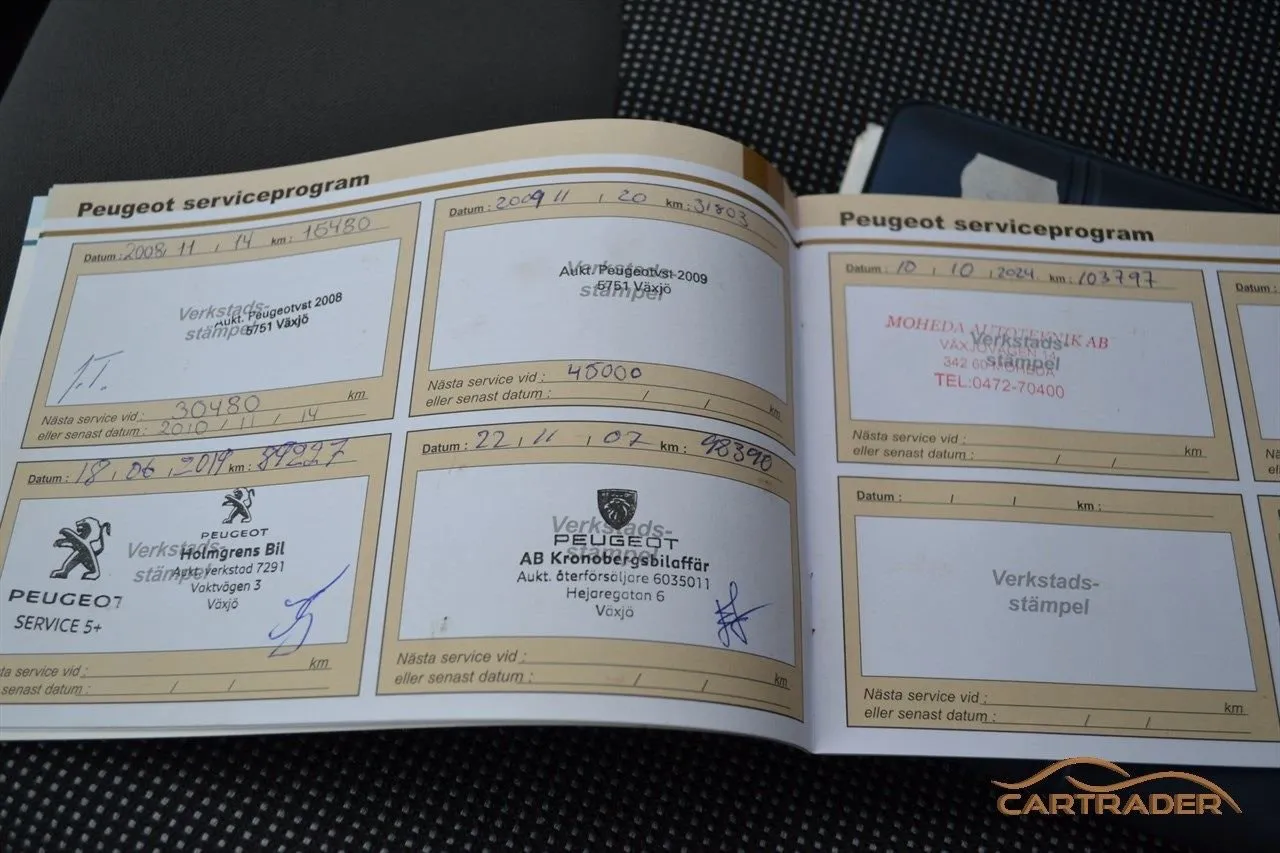 Peugeot serviceprogram
Datum : 2008, 11 , 14 km : 15480
Verkstads-
stämpel
Aukt. Peugeotvst 2008
5751 Växjö
Nästa service vid : 30480 km
eller senast datum : 2010 / 11 / 14
Datum : 2009 11 , 20 km : 31803
Verkstads-
stämpel
Aukt. Peugeotvst 2009
5751 Växjö
Nästa service vid : 45000
eller senast datum : / / km
Datum : 18 , 06 , 2019 km : 89227
Verkstads-
stämpel
PEUGEOT
SERVICE 5+
PEUGEOT
Holmgrens Bil
Aukt verkstad 7291
Vaktvägen 3
Växjö
service vid : km
senast datum : / /
Datum : 22 , 11 , 07 km : 98390
Verkstads-
stämpel
PEUGEOT
AB Kronobergsbilaffär
Aukt. återförsäljare 6035011
Hejaregatan 6
Växjö
Nästa service vid :
eller senast datum : / / km
Peugeot serviceprogram
Datum : 10 , 10 , 2024 km : 103797
Verkstads-
stämpel
MOHEDA AUTOTEKNIK AB
TEL:0472-70400
Nästa service vid : km
eller senast datum : / /
Datum : / / km :
Verkstads-
stämpel
Nästa service vid : km
eller senast datum : / /
Datum :
CARTRADER